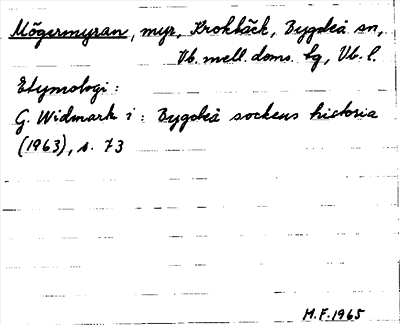 Mögermyran, myr, Krokbäck, Bygdeå sn,
Vb. mell. doms. tg, Vb. l.
Etymologi:
G. Widmark i: Bygdeå sockens historia
(1963), s. 73
M.F. 1965